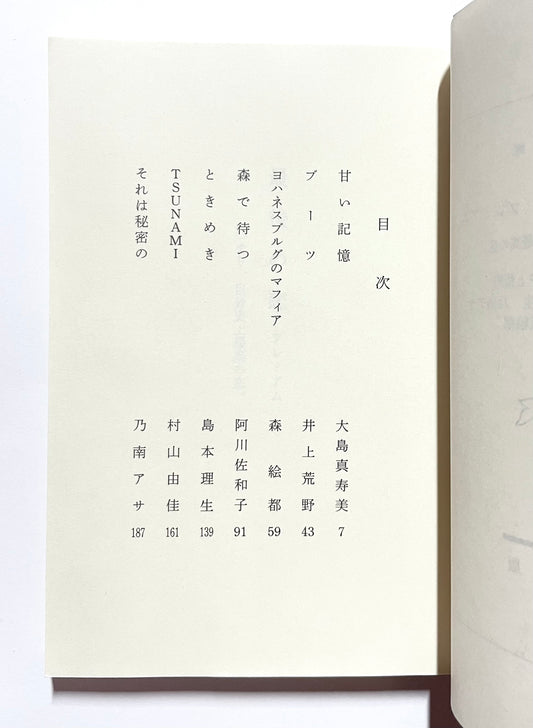 目次
甘い記憶 大島真寿美 7
ブーツ 井上荒野 43
ヨハネスブルグのマフィア 森絵都 59
森で待つ 阿川佐和子 91
ときめき 島本理生 139
TSUNAMI 村山由佳 161
それは秘密の 乃南アサ 187